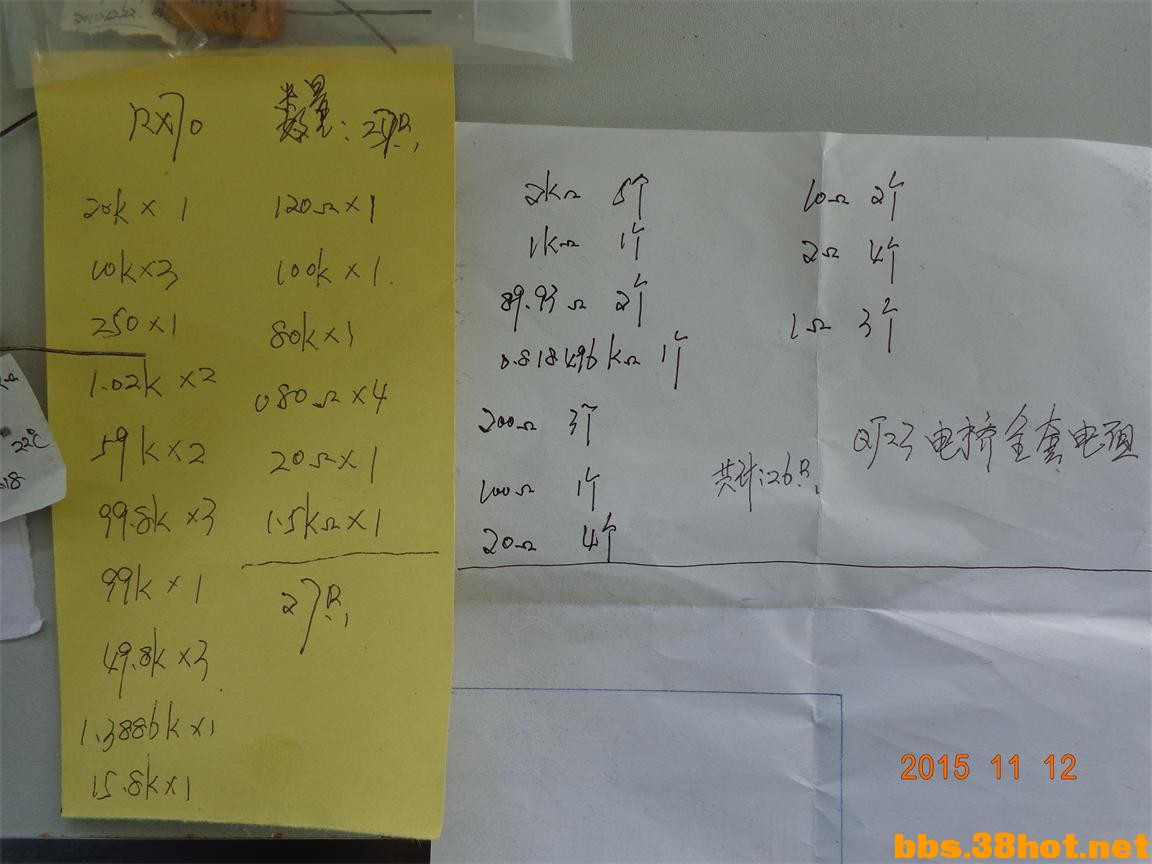 RX70 数量:27只
20k × 1
10k × 3
250 × 1
1.02k × 2
59k × 2
99.8k × 3
99k × 1
49.8k × 3
1.3886k × 1
15.8k × 1
120Ω × 1
100k × 1
80k × 1
080Ω × 4
20Ω × 1
1.5kΩ × 1
27只
2kΩ 5个
1kΩ 1个
89.93Ω 2个
0.818496kΩ 1个
200Ω 3个
100Ω 1个
20Ω 4个
10Ω 2个
2Ω 4个
1Ω 3个
共计:26只
QJ23电桥全套电阻
22℃
2015 11 12
bbs.38hot.net